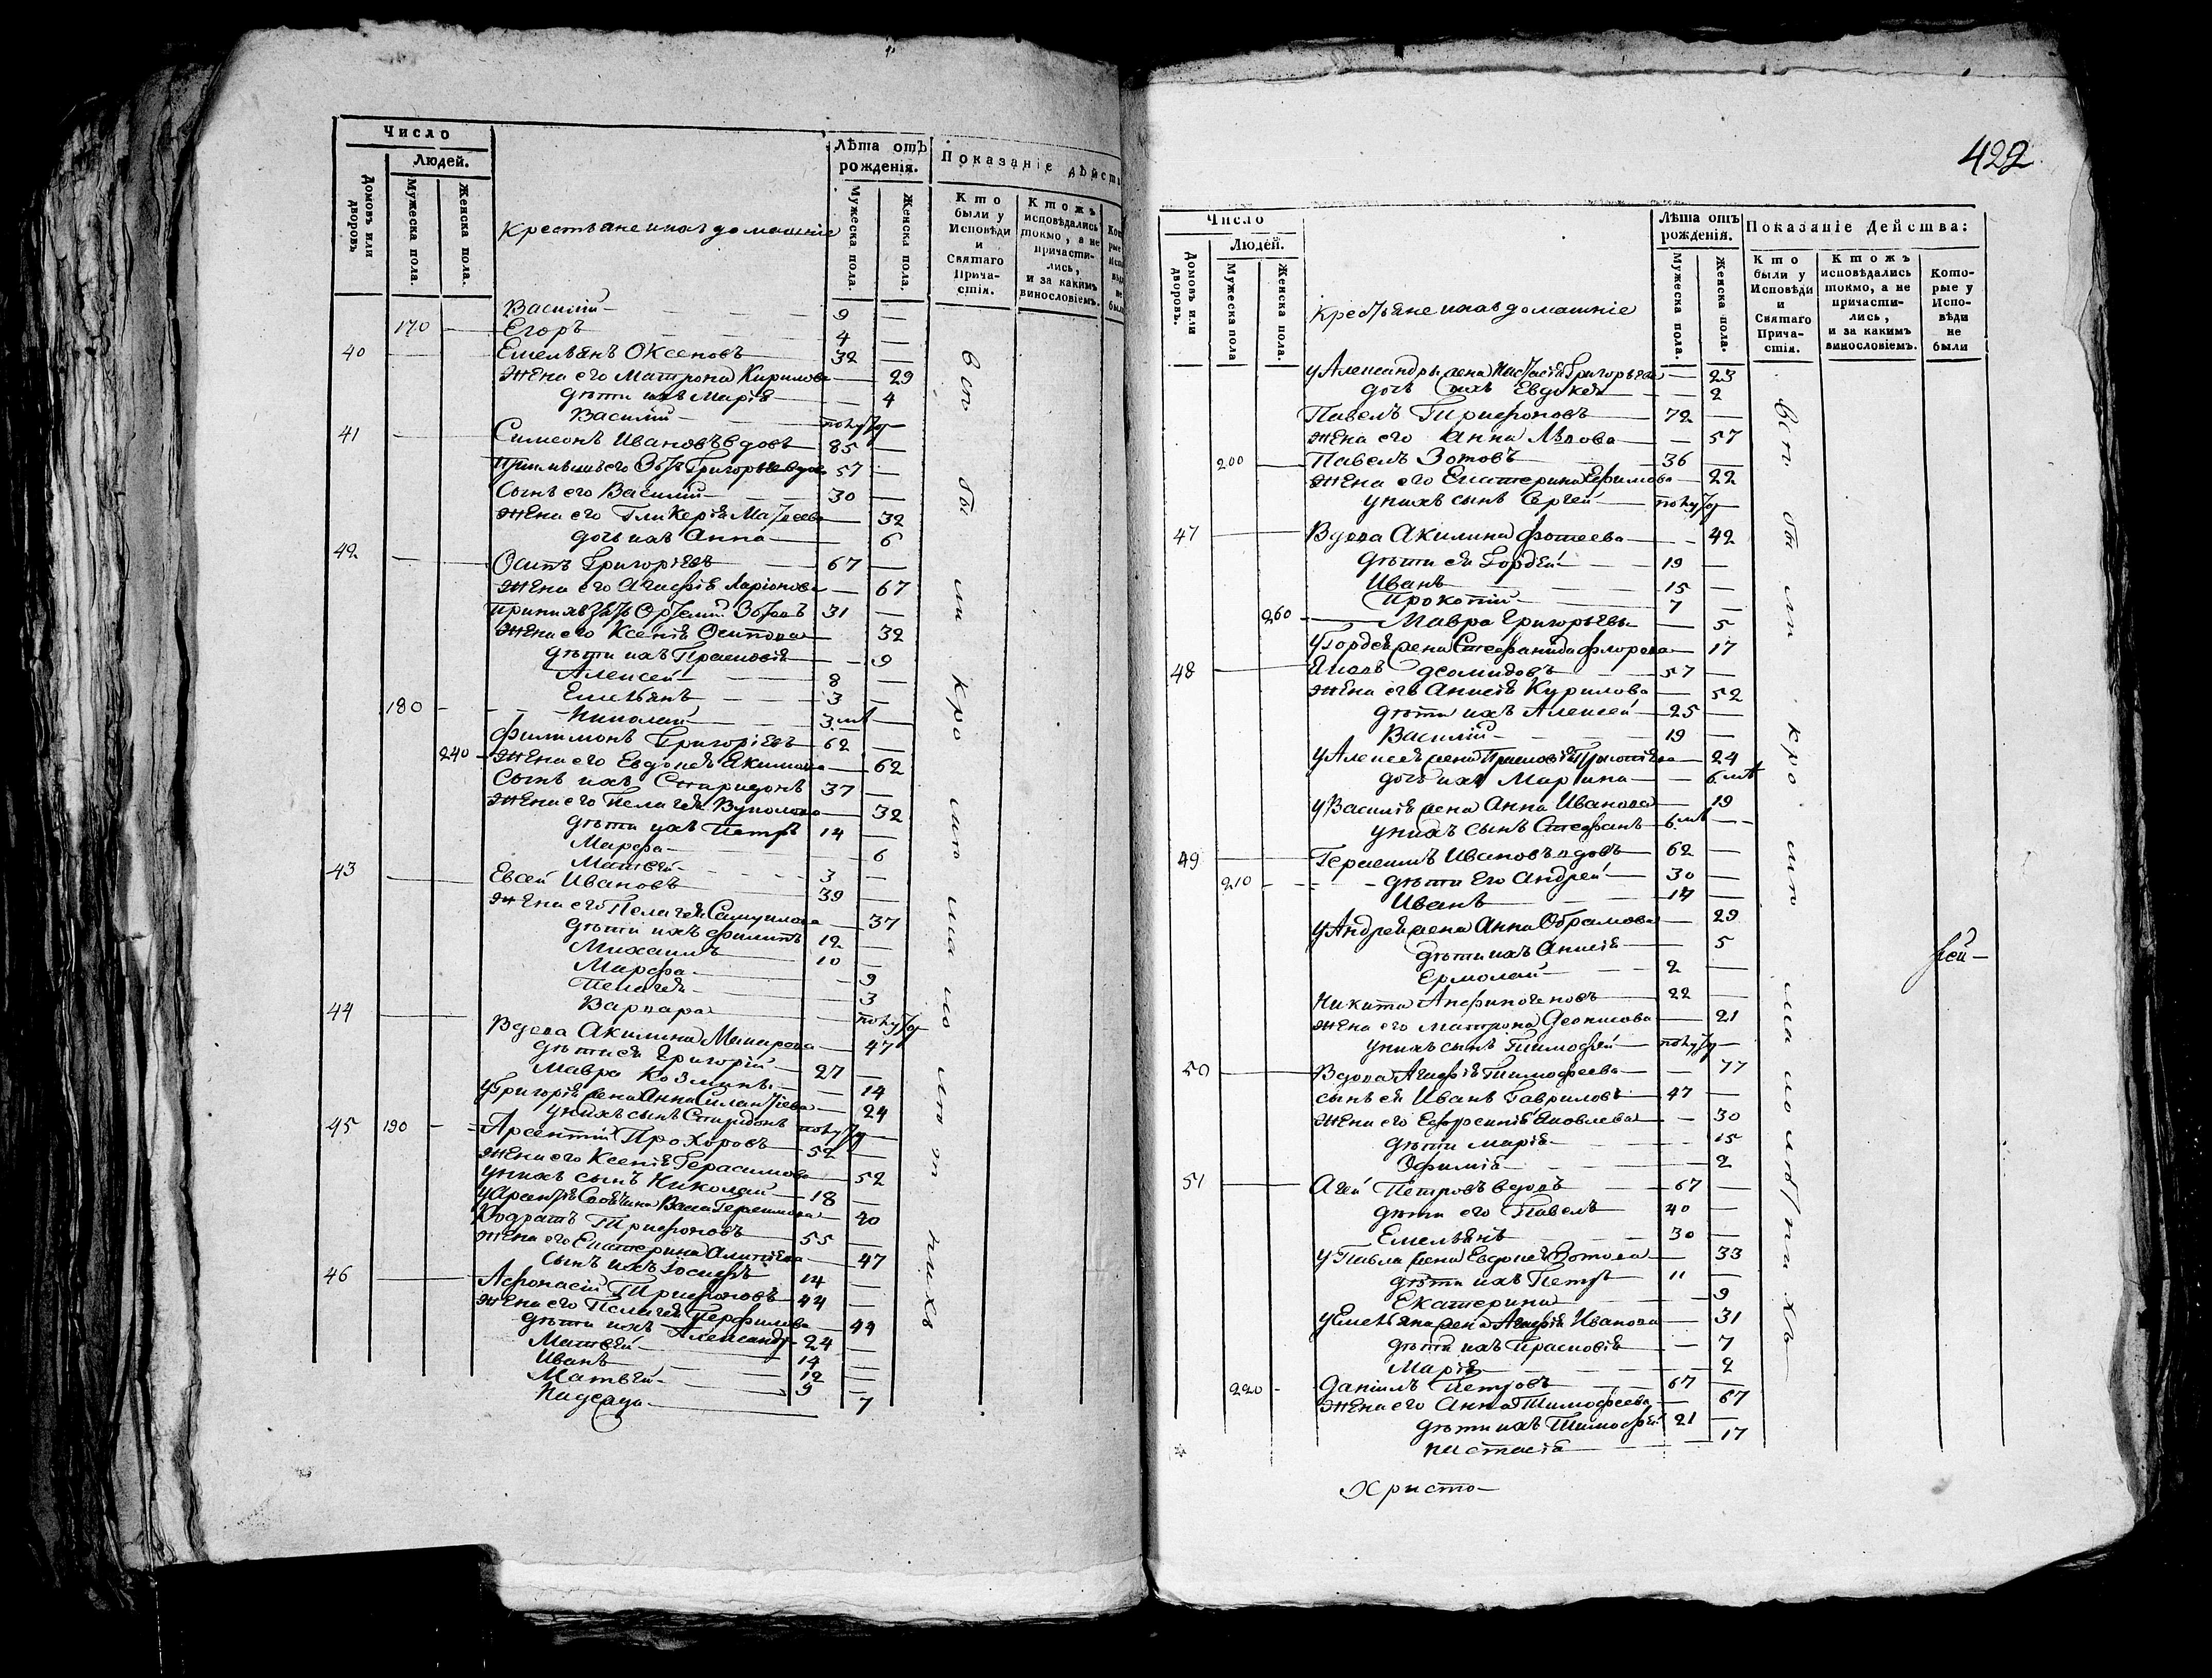 Число
Людей.
Домовъ или дворовъ.
Мужеска пола.
Женска пола.
Крестьяне и ихъ домашніе
Лѣта отъ рожденія.
Мужеска пола.
Женска пола.
Показаніе дѣйств
Кто были у Исповѣди и Святаго Прича- стія.
Кто жъ исповѣдались токмо, а не причасти- лись, и за какимъ винословіемъ.
Василій 9
170 Егоръ 4
40 Емельянъ Оксеновъ 32
Жена его Матрона Кирилова 29
дѣти ихъ Марія 4
Василій полуго
41 Симеонъ Ивановъ вдовъ 85
57
Сынъ его Василій 30
Жена его Гликерія Маѳеева 32
дочь ихъ Анна 6
42 Осипъ Григоріевъ 67
Жена его Агафія Ларіонова 67
31
Жена его Ксенія Осипова 32
дѣти ихъ Прасковія 9
Алексей 8
Емельянъ 3
180 Николай 3 мѣ
Филимонъ Григоріевъ 62
240 Жена его Евдокея Акимова 62
Сынъ ихъ Спиридонъ 37
Жена его Пелагея Вуколова 32
дѣти ихъ Петръ 14
Марфа 6
Матвей 3
43 Евсей Ивановъ 39
Жена его Пелагея Самуилова 37
дѣти ихъ Филипъ 12
Михаилъ 10
Марфа 9
Пелагея 3
Варвара полуго
44 Вдова Акилина Макарова 47
дѣти ея Григорій 27
Мавра Козмины 14
у Григорія жена Анна 24
у нихъ сынъ Спиридонъ полуго
45 190 Арсентій Прохоровъ 52
Жена его Ксенія Герасимова 52
у нихъ сынъ Николай 18
Герасимова 20
Кодратъ Трифоновъ 55
Жена его Екатерина 47
Сынъ ихъ Іосифъ 14
46 Афонасій Трифоновъ 44
Жена его Пелагея Перфилова 44
дѣти ихъ Александръ 24
Матвей 14
Иванъ 12
Матвей 9
Надежда 7
всѣ были кромѣ малолѣтнихъ
422
Число
Людей.
Домовъ или дворовъ.
Мужеска пола
Женска пола.
Крестьяне и ихъ домашніе
Лѣта отъ рожденія.
Мужеска пола.
Женска пола.
Показаніе Действа:
Кто были у Исповѣди и Святаго Прича- стія.
Кто жъ исповѣдались токмо, а не причасти- лись, и за какимъ винословіемъ.
Кото- рые у Испо- вѣди не были
у Александры жена Настасія Григорьева 23
дочь ихъ Евдокея 2
Павелъ Трифоновъ 72
Жена его Анна 57
200 Павелъ Зотовъ 36
Жена его Екатерина Ефимова 22
у нихъ сынъ Сергей полуго
47 Вдова Акилина Фотеева 42
дѣти ея Гордей 19
Иванъ 15
Прокопій 7
260 Мавра Григорьевы 5
у Гордея жена Стефанида Флорова 17
48 Яковъ Деомидовъ 57
Жена его Анисія Курилова 52
дѣти ихъ Алексей 25
Василій 19
у Алексея жена Прасковія 24
дочь ихъ Марина 6 мѣ
у Василія жена Анна Иванова 19
у нихъ сынъ Стефанъ 6 мѣ
49 Герасимъ Ивановъ вдовъ 62
210 дѣти его Андрей 30
Иванъ 14
у Андрея жена Анна Обрамова 29
дѣти ихъ Анисія 5
Ермолай 2
Никита Анфиногеновъ 22
Жена его Матрона Деонисова 21
у нихъ сынъ Тимофей полуго
50 Вдова Агафія Тимофеева 77
сынъ ея Иванъ Гавриловъ 47
Жена его Ефросинія Яковлева 30
дѣти Марія 15
Офимія 2
51 Агей Петровъ вдовъ 67
дѣти его Павелъ 40
Емельянъ 30
у Павла жена Евдокея Зотова 33
дѣти ихъ Петръ 11
Екатерина 9
у Емельяна жена Агафія Иванова 31
дѣти ихъ Прасковія 7
Марія 2
220 Даніилъ Петровъ 67
Жена его Анна Тимофеева 67
дѣти ихъ Тимофей 21
Настасія 17
всѣ были кромѣ малолѣтнихъ
рей
Христо